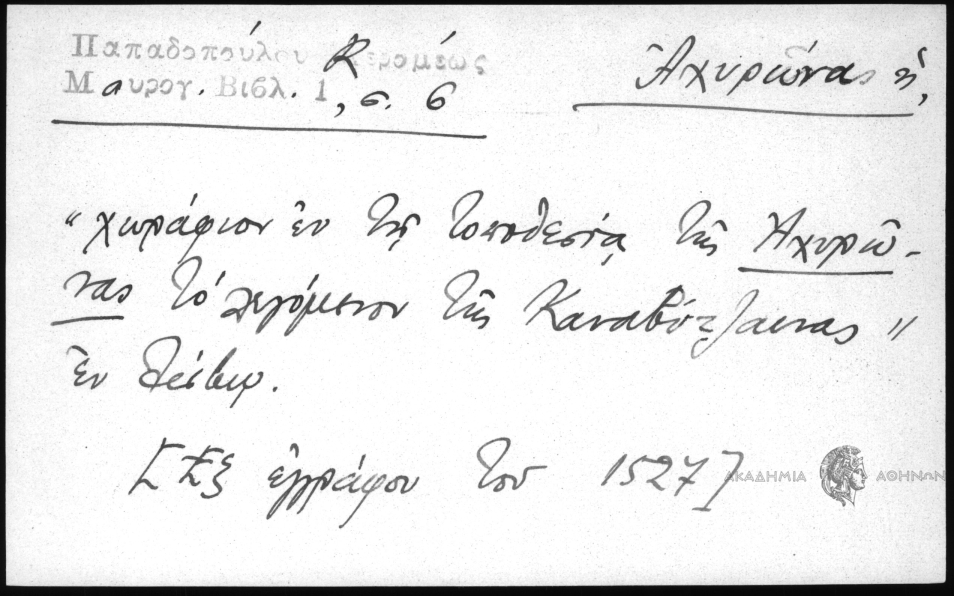 Παπαδοπούλου Κεραμέως
Μαυρογ. Βιβλ. 1, σ. 6
Ἀχυρῶνας ἡ,
"χωράφιον ἐν τῇ τοποθεσίᾳ τῆς Ἀχυρῶ-
νας τὸ λεγόμενον τῆς Καναβότζαινας"
ἐν
[Ἐξ ἐγγράφου τοῦ 1527]
ΑΚΑΔΗΜΙΑ ΑΘΗΝΩΝ